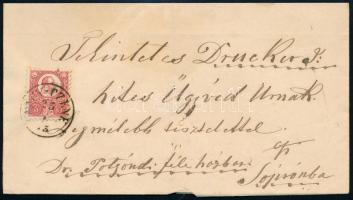 Tekintetes Drucker J:
hites Ügyvéd Urnak
tisztelettel
Dr. Potzóndi féle házban
Sopronba